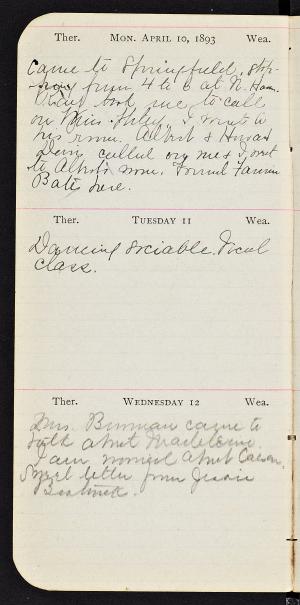 Ther. MON. APRIL 10, 1893 Wea.
Came to Springfield, stop-
ping from 4 to 6 at N. Ham.
took me to call
on Miss I went to
his room. Albert & Howard
Davis called on me & I went
to Albert's room. Found Fannie
Bates here.
Ther. TUESDAY 11 Wea.
Dancing sociable. Vocal
class.
Ther. WEDNESDAY 12 Wea.
Mrs. Burnham came to
talk about Madeleine.
I am worried about
Sweet letter from Jessie